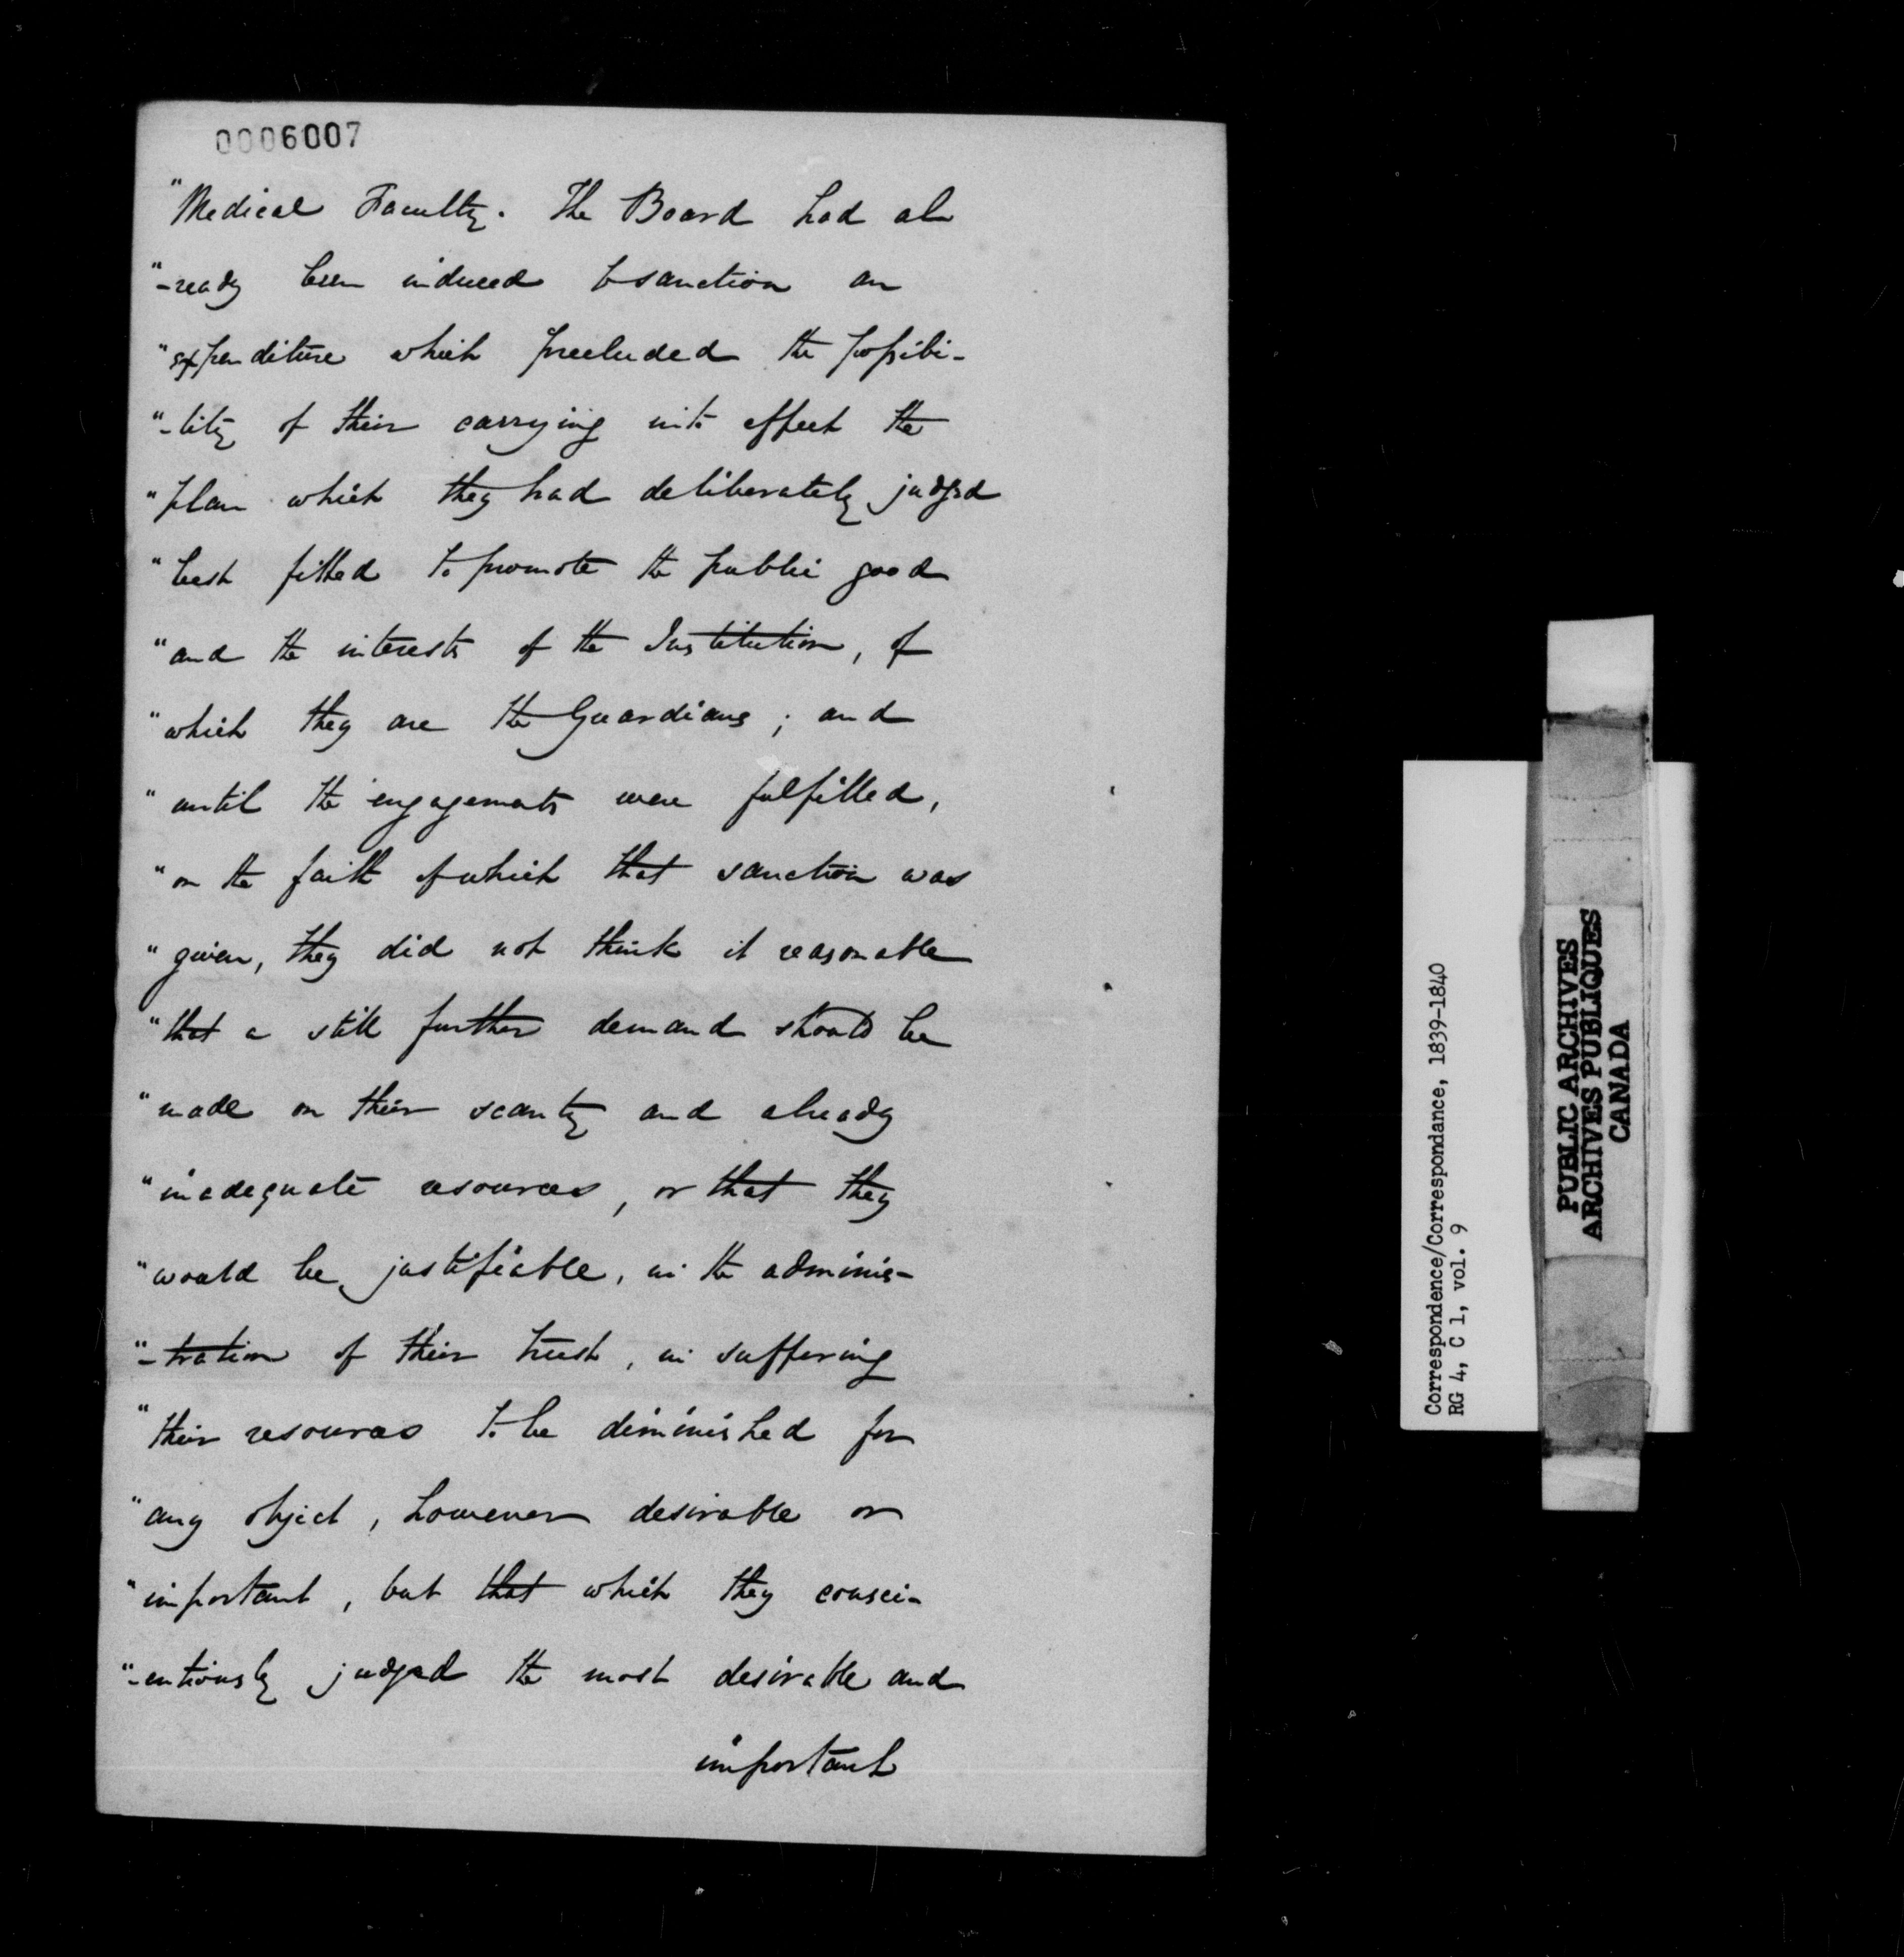 0006007
"Medical Faculty. The Board had al
"-ready been induced to sanction an
"expenditure which precluded the possibi-
"-lity of their carrying into effect the
"plan which they had deliberately judged
"best fitted to promote the public good
"and the interests of the Institution, of
"which they are the Guardians; and
"until the engagements were fulfilled,
"on the faith of which that sanction was
"given, they did not think it reasonable
"that a still further demand should be
"made on their scanty and already
"inadequate resources, or that they
"would be justifiable, in the adminis-
"-tration of their trust, in suffering
"their resources to be diminished for
"any object, however desirable or
"important, but that which they consci-
"-entiously judged the most desirable and
important
Correspondence/Correspondance, 1839-1840
RG 4, C 1, vol. 9
PUBLIC ARCHIVES
ARCHIVES PUBLIQUES
CANADA